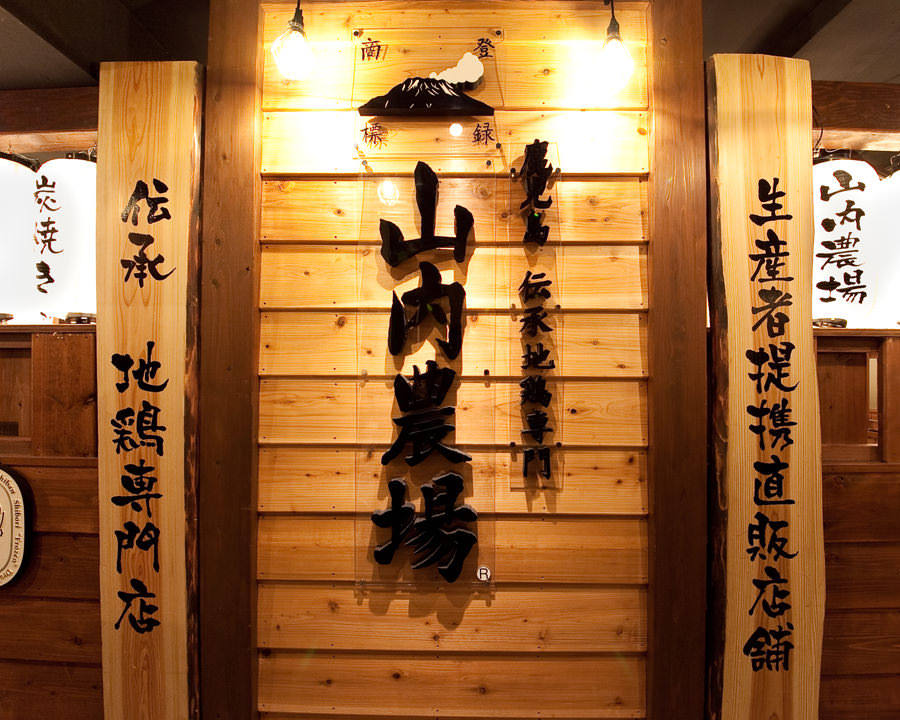 登録
商標
山内農場
®
鹿児島 伝承地鶏専門
生産者提携直販店舗
伝承 地鶏専門店
山内農場
炭焼き
Shibari "Frozen"